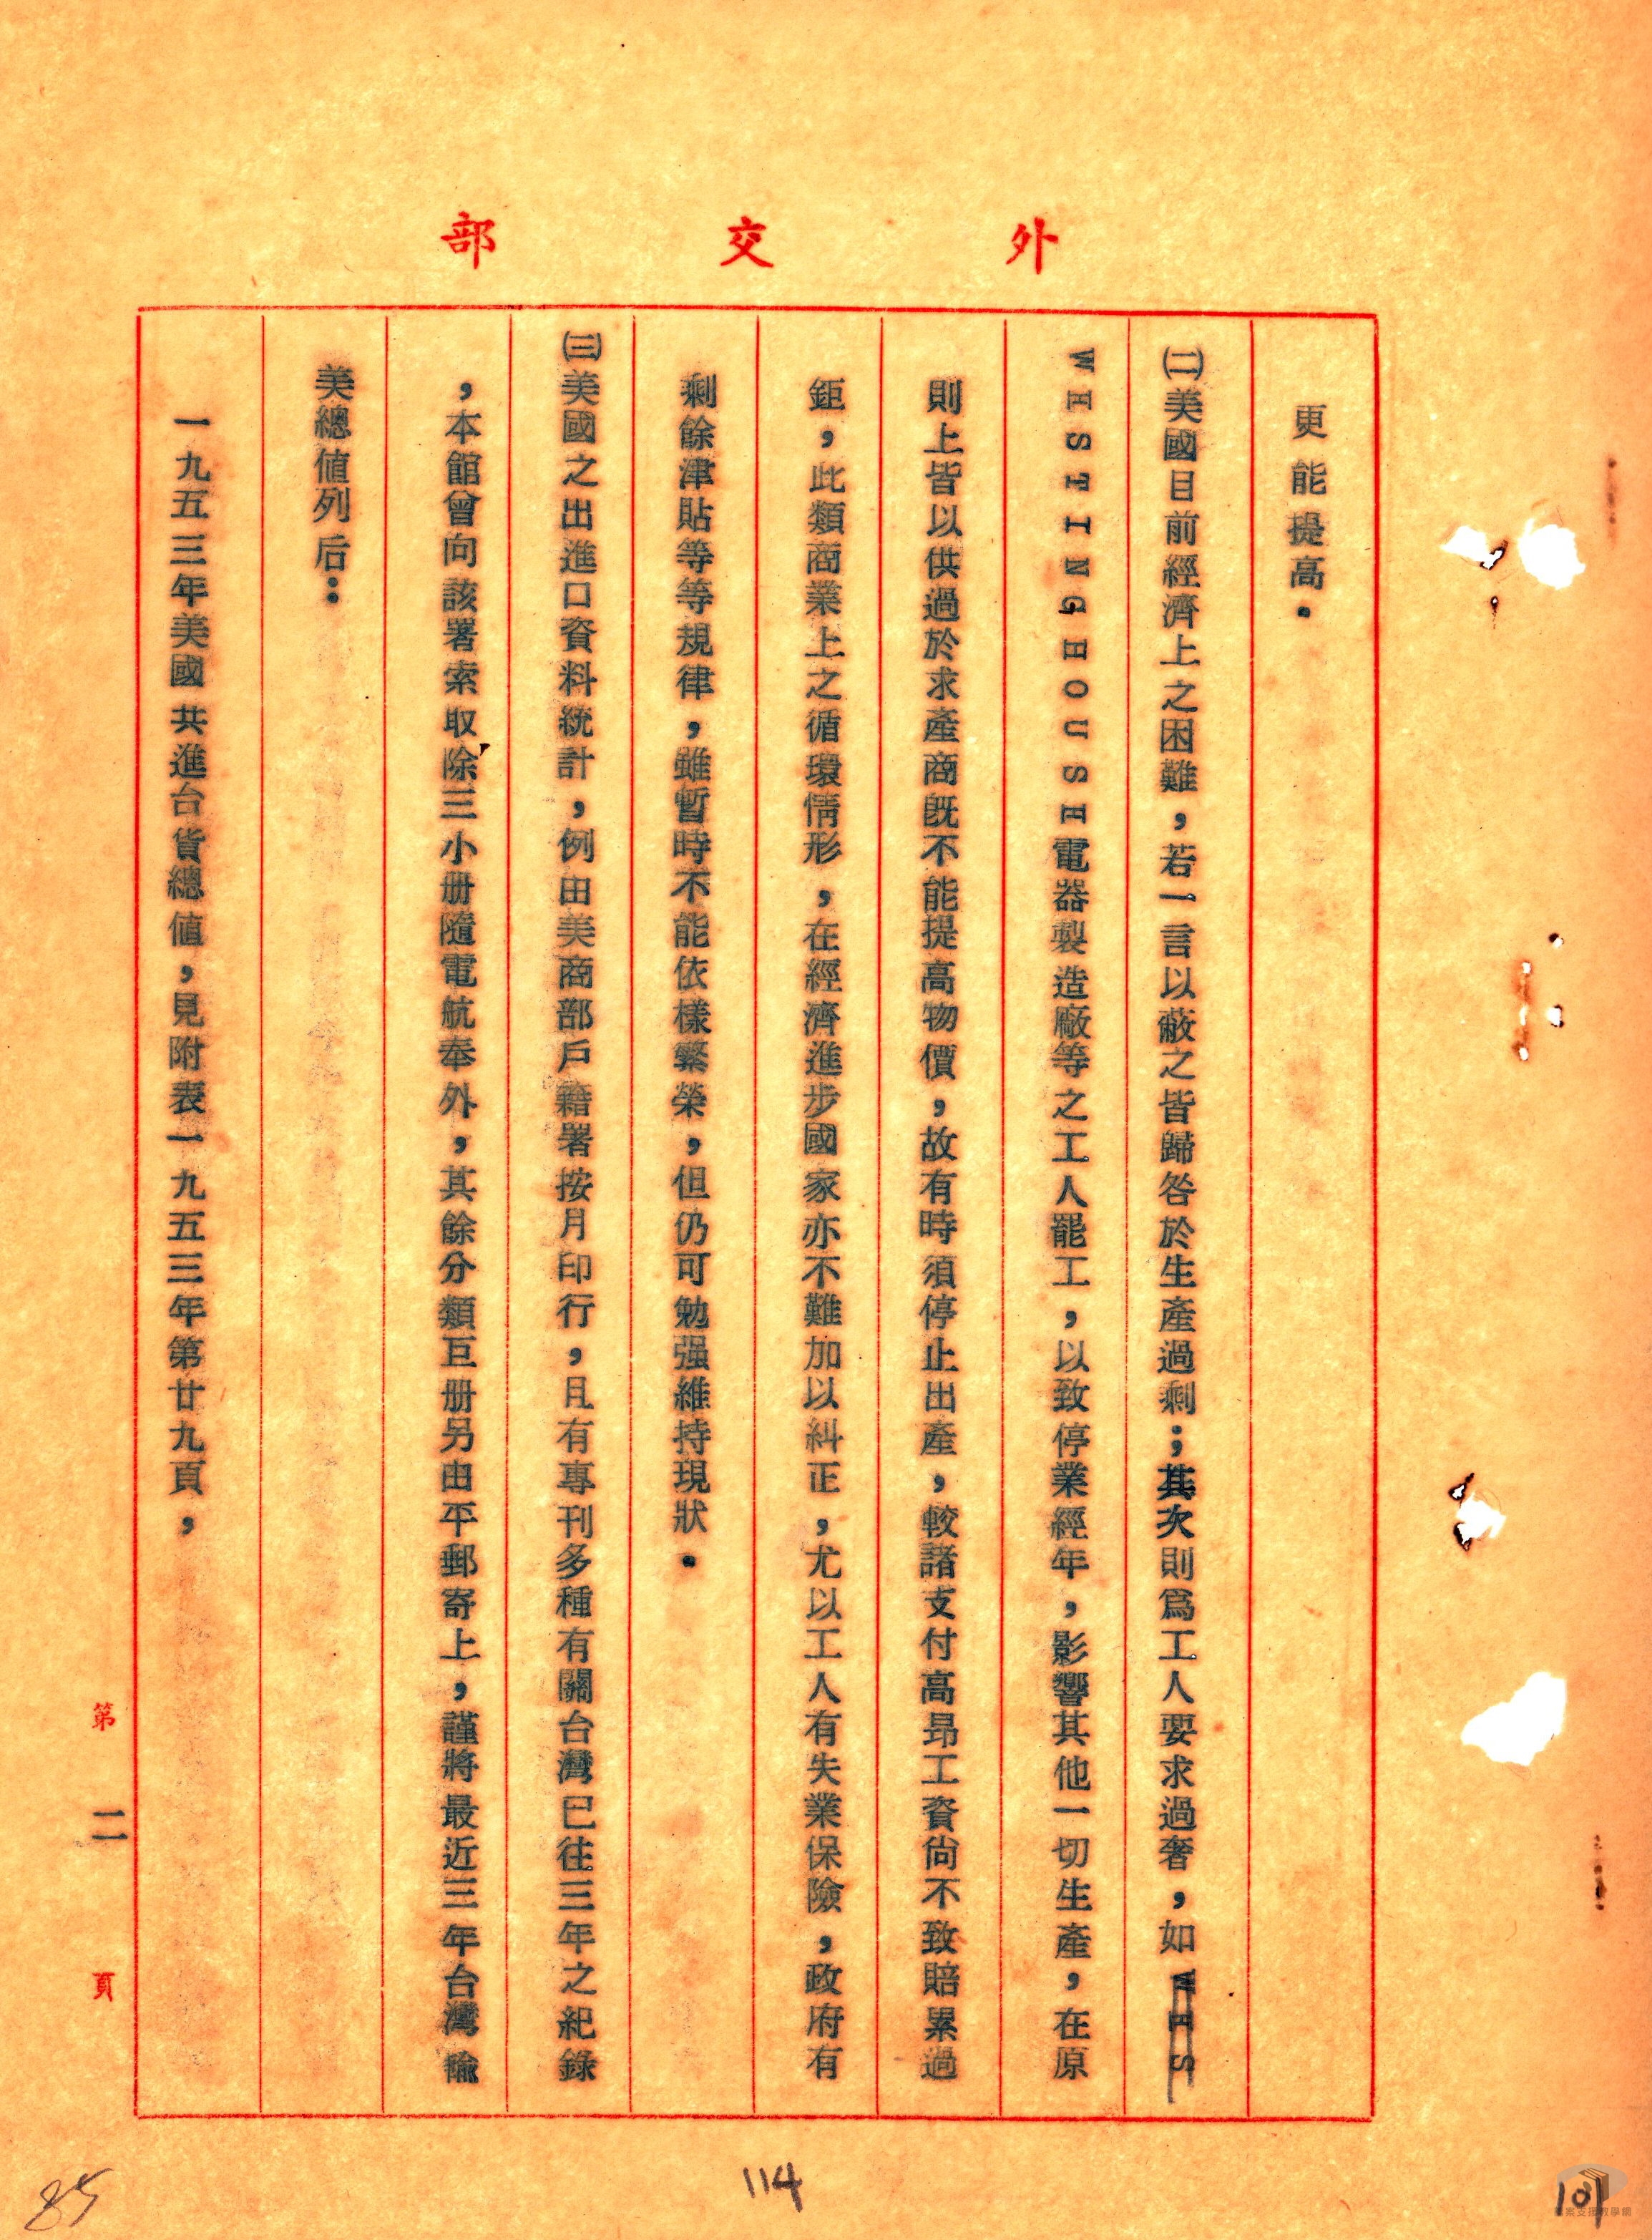 外交部
更能提高。
㈡美國目前經濟上之困難，若一言以蔽之皆歸咎於生產過剩；其次則爲工人要求過奢，如WES
WESTINGHOUSE電器製造廠等之工人罷工，以致停業經年，影響其他一切生產，在原
則上皆以供過於求產商既不能提高物價，故有時須停止出產，較諸支付高昂工資尚不致賠累過
鉅，此類商業上之循環情形，在經濟進步國家亦不難加以糾正，尤以工人有失業保險，政府有
剩餘津貼等等規律，雖暫時不能依樣繁榮，但仍可勉强維持現狀。
㈢美國之出進口資料統計，例由美商部戶籍署按月印行，且有專刊多種有關台灣已往三年之紀錄
，本館曾向該署索取除三小册隨電航奉外，其餘分類巨册另由平郵寄上，謹將最近三年台灣輸
美總值列后：
一九五三年美國共進台貨總值，見附表一九五三年第廿九頁，
第二頁
85
114
101
檔案支援教學網